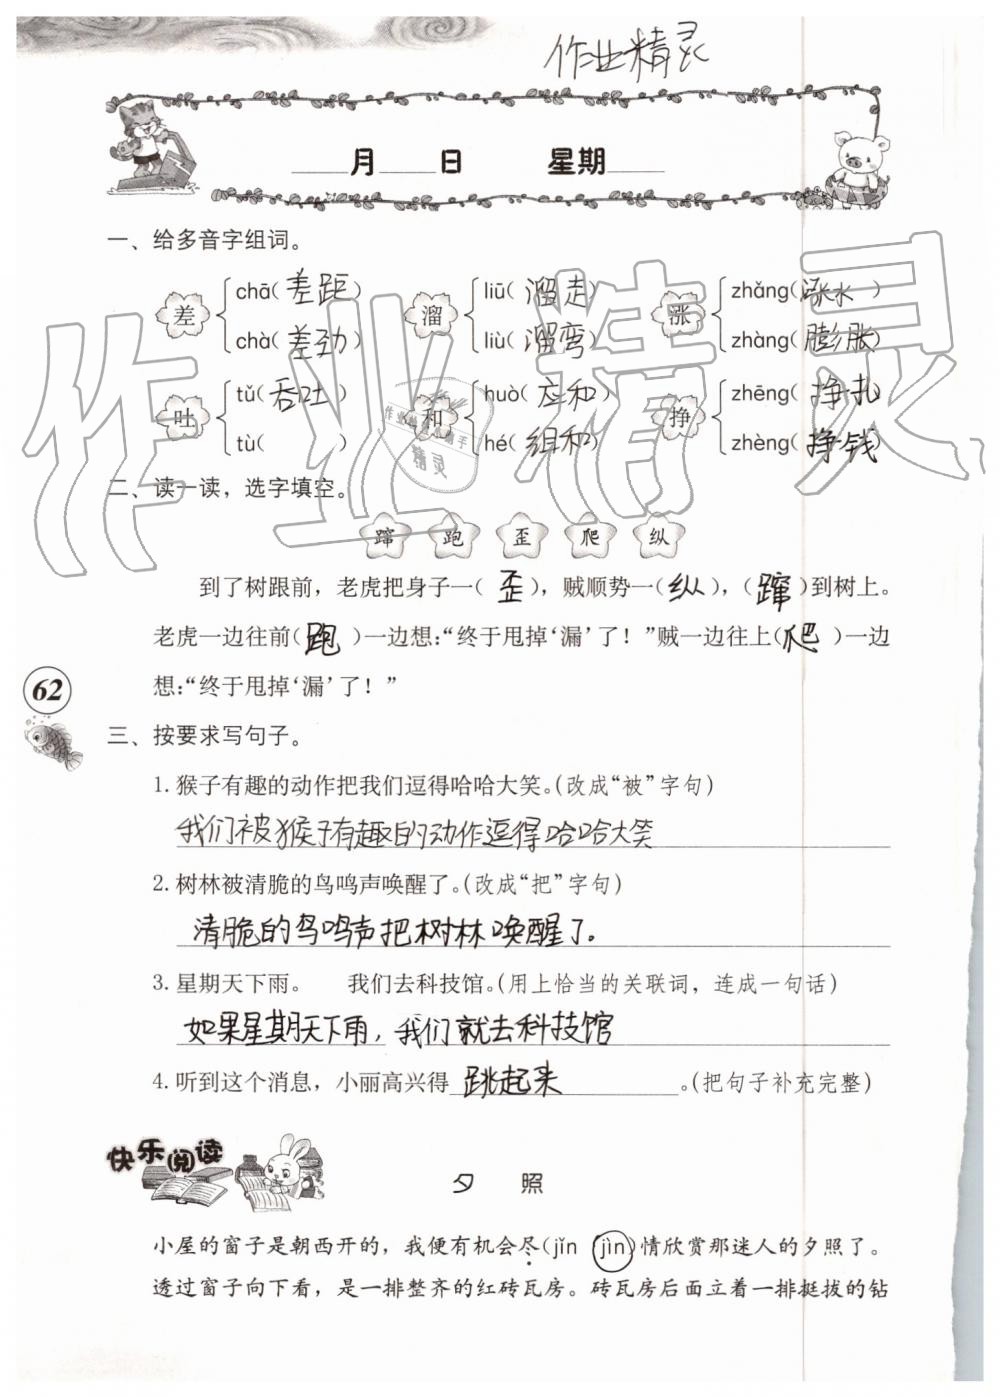 作业精灵
月 日 星期
一、给多音字组词。
差 chā(差距) chà(差劲) 溜 liū(溜走) liù(溜弯) 涨 zhǎng(涨水) zhàng(膨胀)
吐 tǔ(吞吐) tù( ) 和 huò(应和) hé(组和) 挣 zhēng(挣扎) zhèng(挣钱)
二、读一读，选字填空。
蹿 跑 歪 爬 纵
到了树跟前，老虎把身子一(歪)，贼顺势一(纵)，(蹿)到树上。
老虎一边往前(跑)一边想:“终于甩掉‘漏’了！”贼一边往上(爬)一边
想:“终于甩掉‘漏’了！”
62
三、按要求写句子。
1. 猴子有趣的动作把我们逗得哈哈大笑。(改成“被”字句)
我们被猴子有趣的动作逗得哈哈大笑
2. 树林被清脆的鸟鸣声唤醒了。(改成“把”字句)
清脆的鸟鸣声把树林唤醒了。
3. 星期天下雨。 我们去科技馆。(用上恰当的关联词，连成一句话)
如果星期天下雨，我们就去科技馆
4. 听到这个消息，小丽高兴得跳起来。(把句子补充完整)
快乐阅读
夕 照
小屋的窗子是朝西开的，我便有机会尽(jǐn jìn)情欣赏那迷人的夕照了。
透过窗子向下看，是一排整齐的红砖瓦房。砖瓦房后面立着一排挺拔的钻